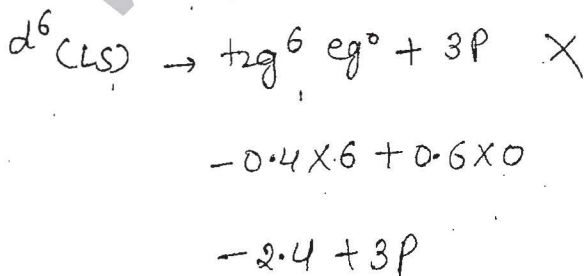 d⁶ (LS) → t2g⁶ eg⁰ + 3P X
-0.4 X 6 + 0.6 X 0
-2.4 + 3P